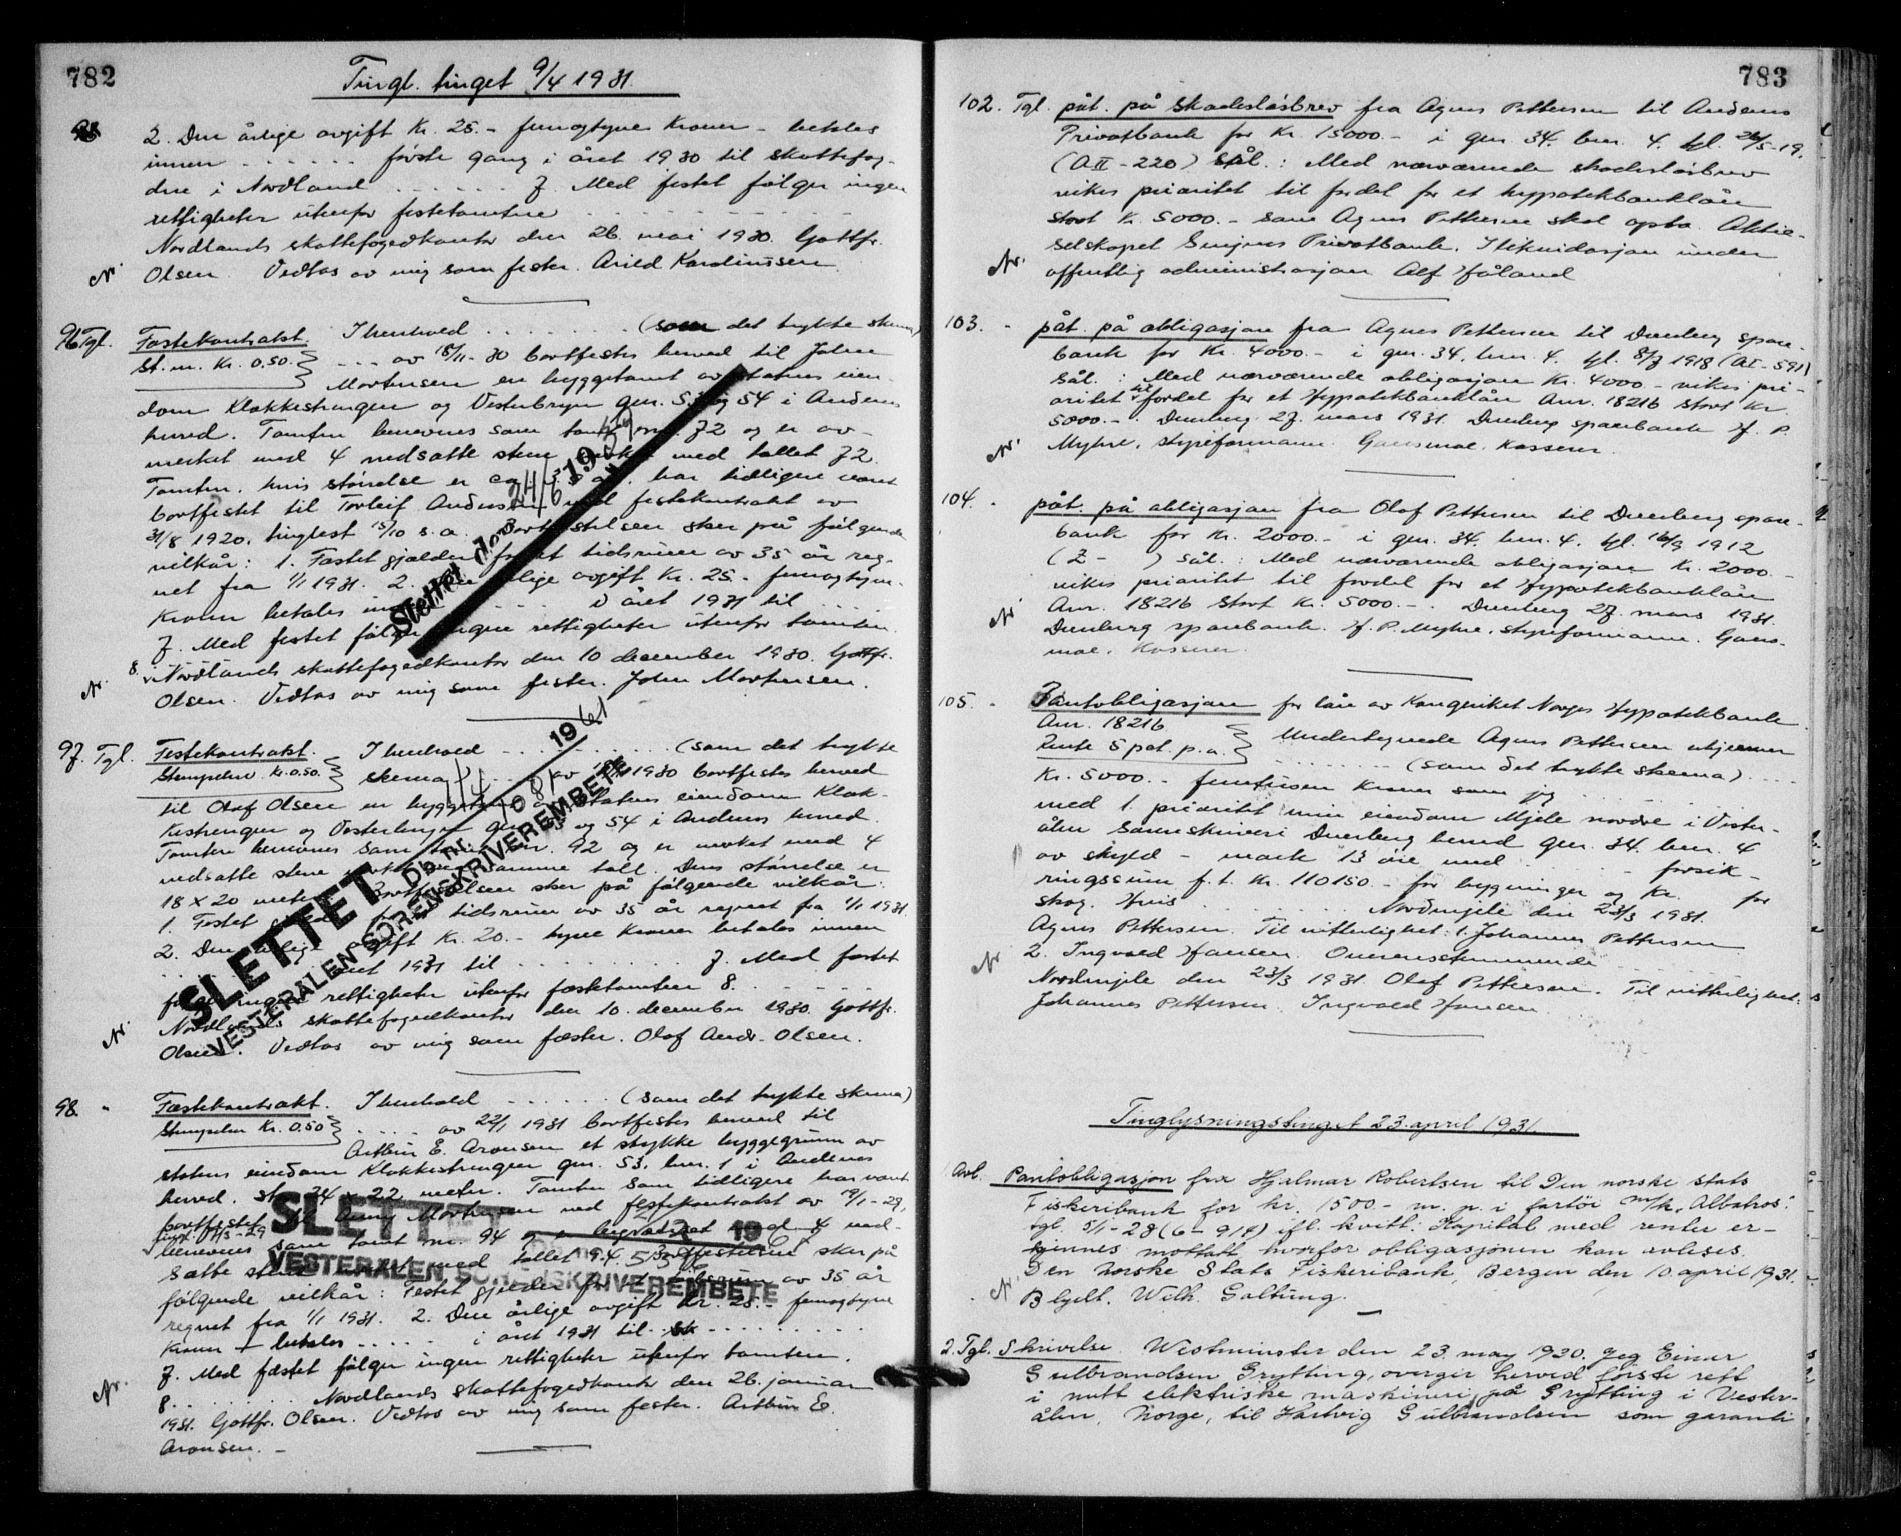 782
Tingl. tinget 9/4 1931.
2. Den årlige avgift Kr. 25.- femogtyve Kroner - betales
innen . . . . . . første gang i året 1930 til skattefog-
den i Nordland . . . . . . 7. Med festet følger ingen
rettigheter utenfor festetomten . . . . . .
Nordlands skattefogedkontor den 26. mai 1930. Gottfr.
Olsen. Vedtas av mig som fester. Arild Karolinssen.
96 Tgl. Festekontrakt. I henhold . . . . . . (som det trykte skema)
St. m. Kr. 0.50. . . . av 15/11-30 bortfestes herved til John
Mortensen en byggetomt av statens eien-
dom Klokkestrengen og Vesterbryn gnr. 53 og 54 i Andenes
herred. Tomten benevnes som tomt nr. 72 og er av-
merket med 4 nedsatte stene merket med tallet 72.
Tomten, hvis størrelse er ca. har tidligere været
bortfestet til Torleif Anderssen ved festekontrakt av
31/8 1920, tinglest 15/10 s.a. Bortfestelsen skjer på følgende
vilkår: 1. Festet gjelder for et tidsrum av 35 år reg-
net fra 1/1 1931. 2. Den årlige avgift Kr. 25.- femogtyve
Kroner betales innen . . . . i året 1931 til . . . .
7. Med festet følger ingen rettigheter utenfor tomten.
8. Nordlands skattefogedkontor den 10 december 1930. Gottfr.
Olsen. Vedtas av mig som fester. John Mortensen.
Slettet 24/6 1959
97. Tgl. Festekontrakt. I henhold . . . . . . (som det trykte
Stempelm. Kr. 0.50. skema) . . . av 1930 bortfestes herved
til Olaf Olsen en byggetomt av statens eiendom Klok-
kestrengen og Vesterbryn gnr. 53 og 54 i Andenes herred.
Tomten benevnes som tomt nr. 92 og er merket med 4
nedsatte stene merket med samme tall. Dens størrelse er
18 x 20 meter. Bortfestelsen skjer på følgende vilkår:
1. Festet gjelder for et tidsrum av 35 år regnet fra 1/1 1931.
2. Den årlige avgift Kr. 20.- tyve Kroner betales innen
. . . . året 1931 til . . . . . . 7. Med festet
følger ingen rettigheter utenfor festetomten 8. . . . .
Nordlands skattefogedkontor den 10. december 1930. Gottfr.
Olsen. Vedtas av mig som fester. Olaf Andr. Olsen.
SLETTET 1961
Db. nr.
VESTERÅLEN SORENSKRIVEREMBETE
98. " Festekontrakt. I henhold . . . . . . (som det trykte skema)
Stempelm Kr. 0.50 . . . . av 22/1 1931 bortfestes herved til
Arthur E. Aronsen et stykke byggegrunn av
statens eiendom Klokkestrengen gnr. 53, bnr. 1 i Andenes
herred, st. 24 x 22 meter. Tomten som tidligere har vært
bortfestet til Mortensen ved festekontrakt av 19/1-29,
benevnes som tomt nr. 94 og er begrænset med 4 ned-
satte stene merket med tallet 94. Bortfestelsen skjer på
følgende vilkår: Festet gjelder for et tidsrum av 35 år
regnet fra 1/1 1931. 2. Den årlige avgift Kr. 25.- femogtyve
Kroner betales . . . . i året 1931 til . . . . . .
7. Med festet følger ingen rettigheter utenfor tomten.
8. . . . . . . Nordlands skattefogedkontor den 26. januar
1931. Gottfr. Olsen. Vedtas av mig som fester. Arthur E.
Aronsen. -
SLETTET
VESTERÅLEN SORENSKRIVEREMBETE
783
102. Tgl. påt. på skadesløsbrev fra Agnes Pettersen til Andenes
Privatbank for Kr. 15000.- i gnr. 34. bnr. 4. tgl. 26/5-19.
(A II - 220) sål.: Med nærværende skadesløsbrev
vikes prioritet til fordel for et hypotekbanklån
stort Kr. 5000.- som Agnes Pettersen skal opta. Aktie-
selskapet Senjens Privatbank. I likvidasjon under
offentlig administrasjon Alf Håland
103. - påt. på obligasjon fra Agnes Pettersen til Dverberg spare-
bank for Kr. 4000.- i gnr. 34, bnr. 4. tgl. 8/7 1918 (A I - 591)
sål.: Med nærværende obligasjon Kr. 4000.- vikes pri-
oritet til fordel for et Hypotekbanklån Anr. 18216 stort Kr.
5000.-. Dverberg 27. mars 1931. Dverberg sparebank H. P.
Myhre. styreformann. Gansmoe. Kasserer.
104. - påt. på obligasjon fra Olaf Pettersen til Dverberg spare-
bank for Kr. 2000.- i gnr. 34. bnr. 4. tgl. 16/9 1912
(Z - ) sål.: Med nærværende obligasjon Kr. 2000.-
vikes prioritet til fordel for et Hypotekbanklån
Anr. 18216 stort Kr. 5000.-. Dverberg 27. mars 1931.
Dverberg sparebank. H. P. Myhre, styreformann. Gans-
moe. Kasserer.
105. - Pantobligasjon for lån av Kongeriket Norges Hypotekbank
Anr. 18216 Undertegnede Agnes Pettersen utsteder
Rente 5 pct. p.a. . . . . . . (som det trykte skema) . . . .
Kr. 5000.- femtusen Kroner som jeg . . . .
med 1. prioritet i min eiendom Mjele nordre i Vester-
ålen Sorenskriveri Dverberg herred gnr. 34. bnr. 4
av skyld - mark 13 øre med . . . . forsik-
ringssum f. t. Kr. 110150.- for bygninger og Kr. for
skog. Hvis . . . . . . Nordmjele den 23/3 1931.
Agnes Pettersen. Til vitterlighet: 1. Johannes Pettersen
2. Ingvald Hansen. Overensstemmende . . . .
Nordmjele den 23/3 1931. Olaf Pettersen. Til vitterlighet:
Johannes Pettersen. Ingvald Hansen.
Tinglysningstinget 23. april 1931.
Avl. Pantobligasjon fra Hjalmar Robertsen til Den norske stats
Fiskeribank for kr. 1500.- m. p. i fartøi m/k "Albatros".
tgl. 5/1-28 (6 - 918) ifl. kvitt: Kapital med renter er-
kjennes mottatt hvorfor obligasjonen kan avleses.
Den Norske Stats Fiskeribank, Bergen den 10. april 1931.
B. Lydt. Wilh. Galtung.
2. Tgl. Skrivelse. Westminster den 23. may 1930. Jeg Einar
Gulbrandsen Grytting, overgir herved første rett
i mitt elektriske maskineri på Grytting i Vester-
ålen, Norge, til Hartvig Gulbrandsen som garanti